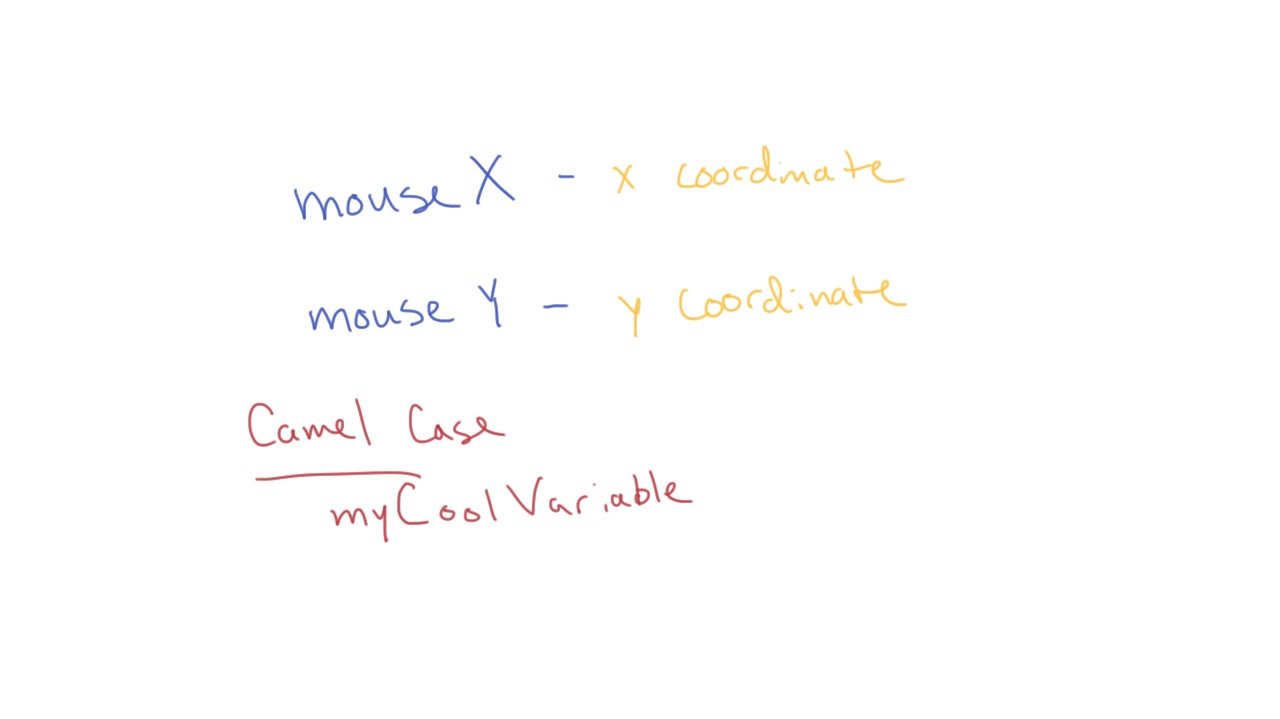 mouseX - x coordinate
mouseY - y coordinate
Camel Case
myCoolVariable